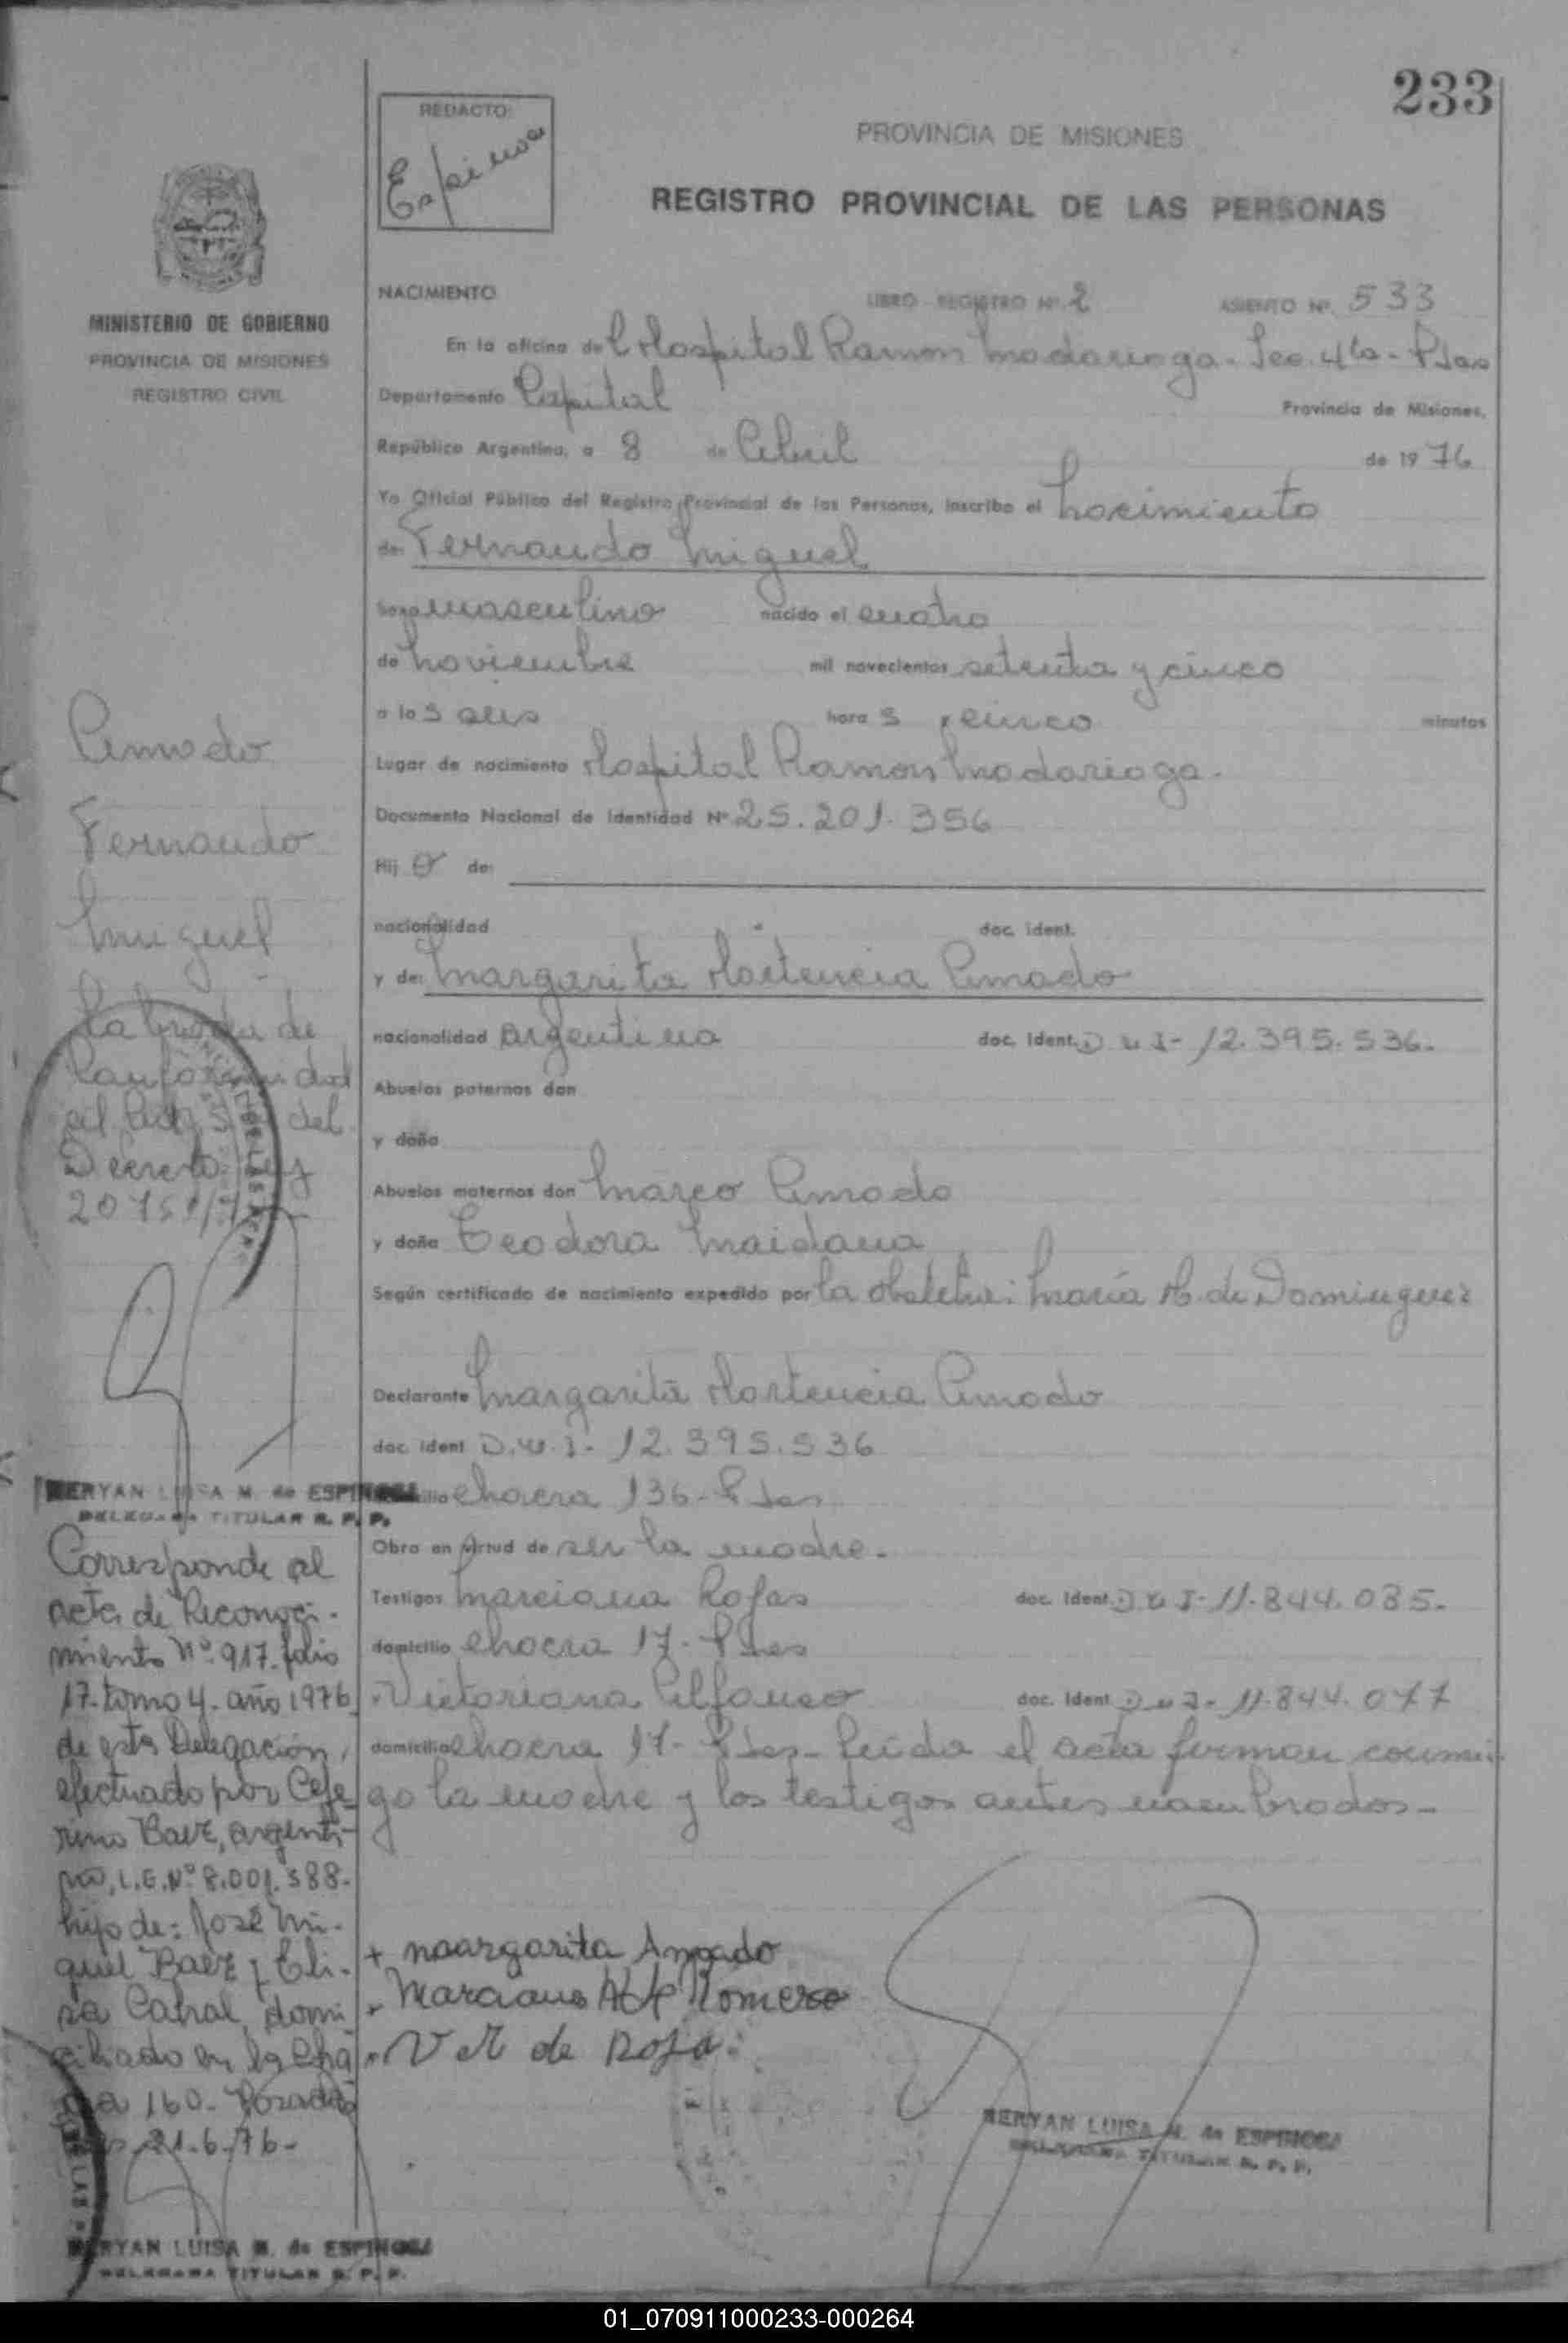 233
REDACTO:
Espinosa
PROVINCIA DE MISIONES
REGISTRO PROVINCIAL DE LAS PERSONAS
MINISTERIO DE GOBIERNO
PROVINCIA DE MISIONES
REGISTRO CIVIL
NACIMIENTO LIBRO REGISTRO Nº 2 ASIENTO Nº 533
En la oficina del Hospital Ramon Madariaga - Sec. 4ta - Pdas
Departamento Capital Provincia de Misiones,
República Argentina, a 8 de Abril de 1976
Yo Oficial Público del Registro Provincial de las Personas, inscribo el nacimiento
de: Fernando Miguel
Sexo masculino nacido el cuatro
de noviembre mil novecientos setenta y cinco
a las seis horas y cinco minutos
Lugar de nacimiento Hospital Ramon Madariaga.
Documento Nacional de Identidad Nº 25.201.356
Hijo de:
nacionalidad doc. ident.
y de: Margarita Hortencia Amado
nacionalidad argentina doc. ident. D N I - 12.395.536.
Abuelos paternos don
y doña
Abuelos maternos don Marco Amado
y doña Teodora Maidana
Según certificado de nacimiento expedido por la Obstetra: María de Dominguez
Declarante Margarita Hortencia Amado
doc. ident D.N.I - 12.395.536
chacra 136 - Pdas
Obra en virtud de ser la madre.
Testigos Marciana Rojas doc. ident. D N I - 11.844.085.
domicilio chacra 17 - Pdas
Victoriana Alfonso doc. ident D N I - 11.844.077
domicilio chacra 17 - Pdas - Leída el acta firman conmi-
go la madre y los testigos antes nombrados -
+ Margarita Amado
Romero
V de Roja
MERYAN LUISA M. de ESPINOSA
DELEGADA TITULAR R. P. P.
Amado
Fernando
Miguel
de
Conformidad
al del
Decreto Ley
MERYAN LUISA M. de ESPINOSA
DELEGADA TITULAR R. P. P.
Corresponde al
acta de Reconoci-
miento Nº 917. folio
17. tomo 4. año 1976
de esta Delegación,
efectuado por Cefe-
rino Baez, argenti-
no, L.E. Nº 8.001.588.
hijo de: José Mi-
guel Baez y Eli-
sa Cabral, domi-
ciliado en la cha
cra 160. Posadas
21-6-76-
MERYAN LUISA M. de ESPINOSA
DELEGADA TITULAR R. P. P.
01_070911000233-000264